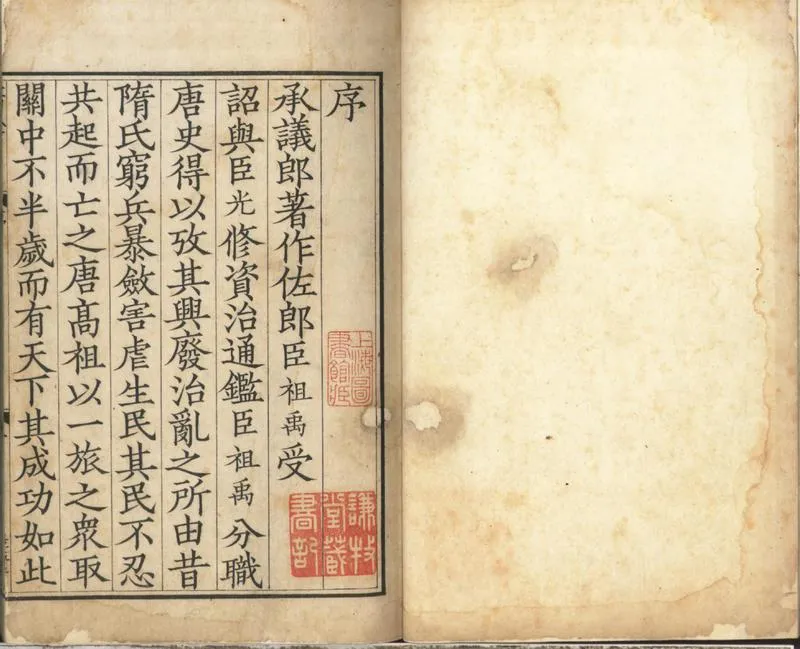 序
承議郎著作佐郎臣祖禹受
詔與臣光修資治通鑑臣祖禹分職
唐史得以攷其興廢治亂之所由昔
隋氏窮兵暴斂害虐生民其民不忍
共起而亡之唐髙祖以一旅之衆取
關中不半歲而有天下其成功如此
上海圖
書館藏
謙牧
堂藏
書記